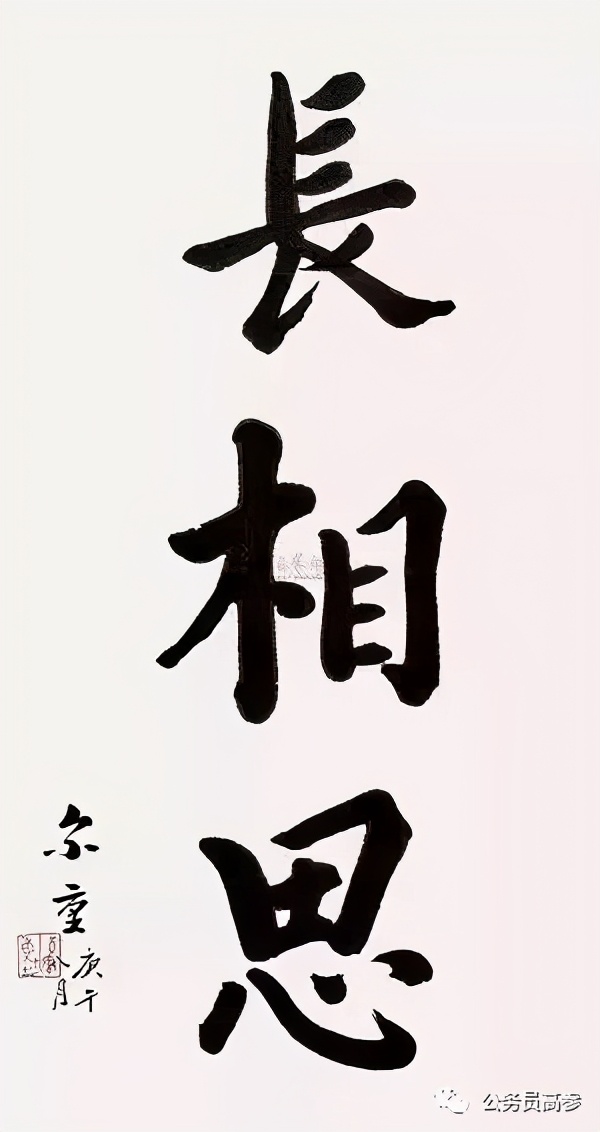 長相思
尔重
庚午
八月
公务员高参